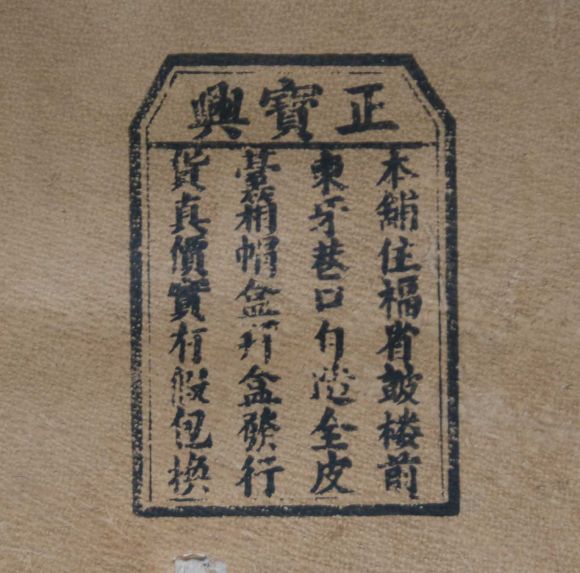 正寶興
本舖住福省皷楼前
東牙巷口自造全皮
箱帽盒拜盒發行
貨真價實有假包換